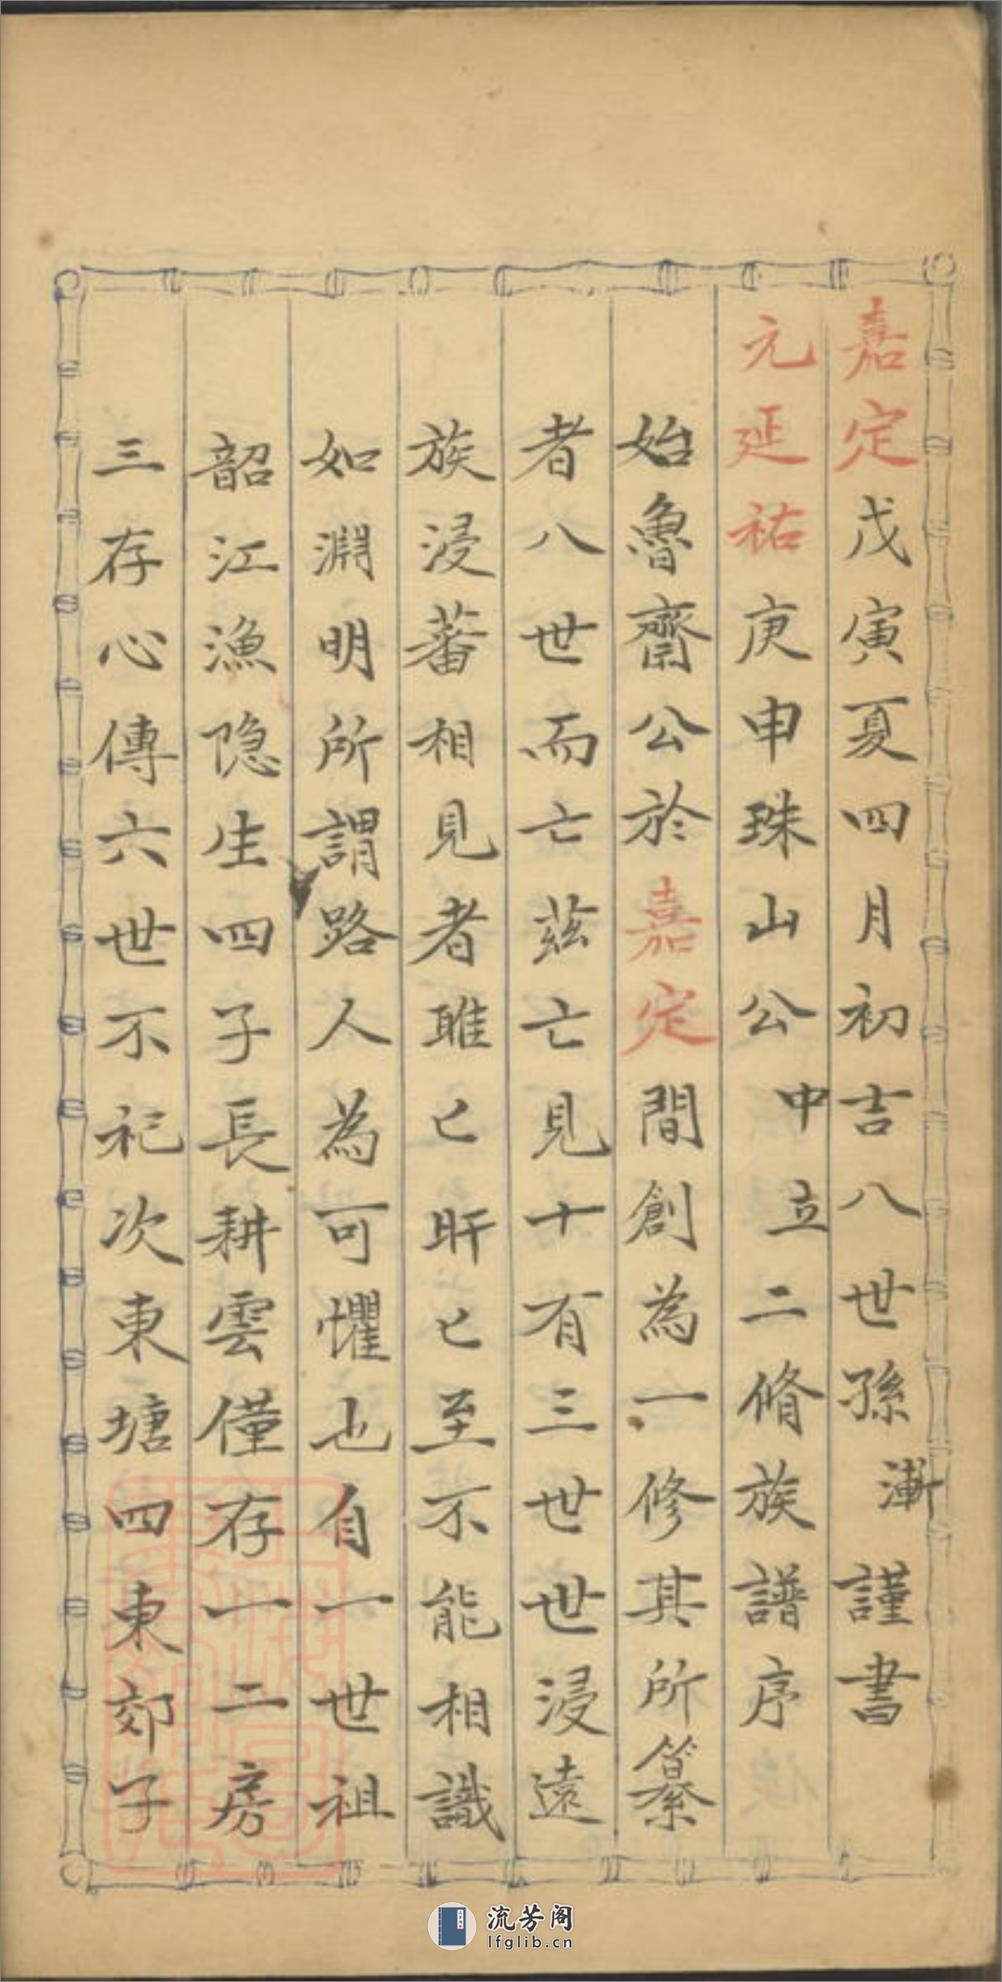 嘉定戊寅夏四月初吉八世孫漸謹書
元延祐庚申珠山公中立二脩族譜序
始魯齋公於嘉定間創為一修其所纂
者八世而亡茲亡見十有三世世浸遠
族浸蕃相見者睢匕盰匕至不能相識
如淵明所謂路人為可懼也自一世祖
韶江漁隐生四子長耕雲僅存一二房
三存心傳六世不祀次東塘四東郊子
流芳阁
lfglib.cn